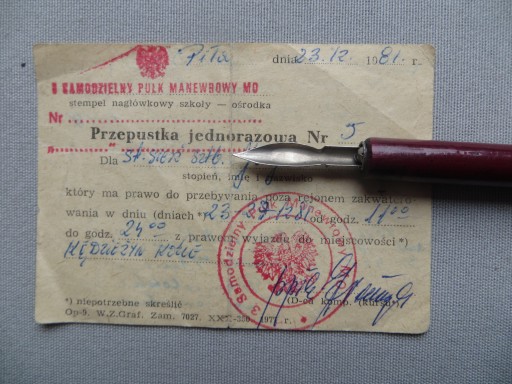 Piła dnia 23.12. 1981. r.
3 SAMODZIELNY PUŁK MANEWROWY MO
stempel nagłówkowy szkoły — ośrodka
Nr
Przepustka jednorazowa Nr 5
Dla St. sierż. szt.
stopień, imię i nazwisko
który ma prawo do przebywania poza rejonem zakwatero-
wania w dniu (dniach *) od godz. 11 00
do godz. 24 00 z prawem wyjazdu do miejscowości *)
KĘDZIERZYN KOŹLE
3 Samodzielny
(D-ca komp. (kursu)
*) niepotrzebne skreślić
Op-9. W.Z.Graf. Zam. 7027.